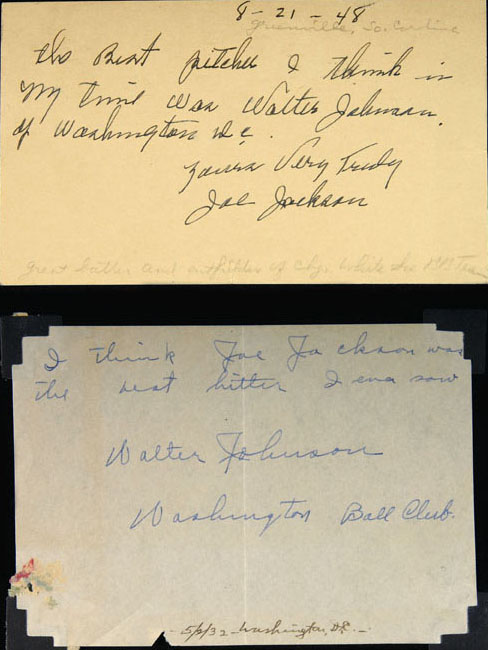 8-21-48
Greenville, So. Carolina
The Best pitcher I think in
My time was Walter Johnson,
of Washington D.C.
Yours Very Truly
Joe Jackson
great batter and outfielder of Chgo. White Sox 1919 Team
I think Joe Jackson was
the best hitter I ever saw
Walter Johnson
Washington Ball Club.
5/2/32 Washington, D.C.